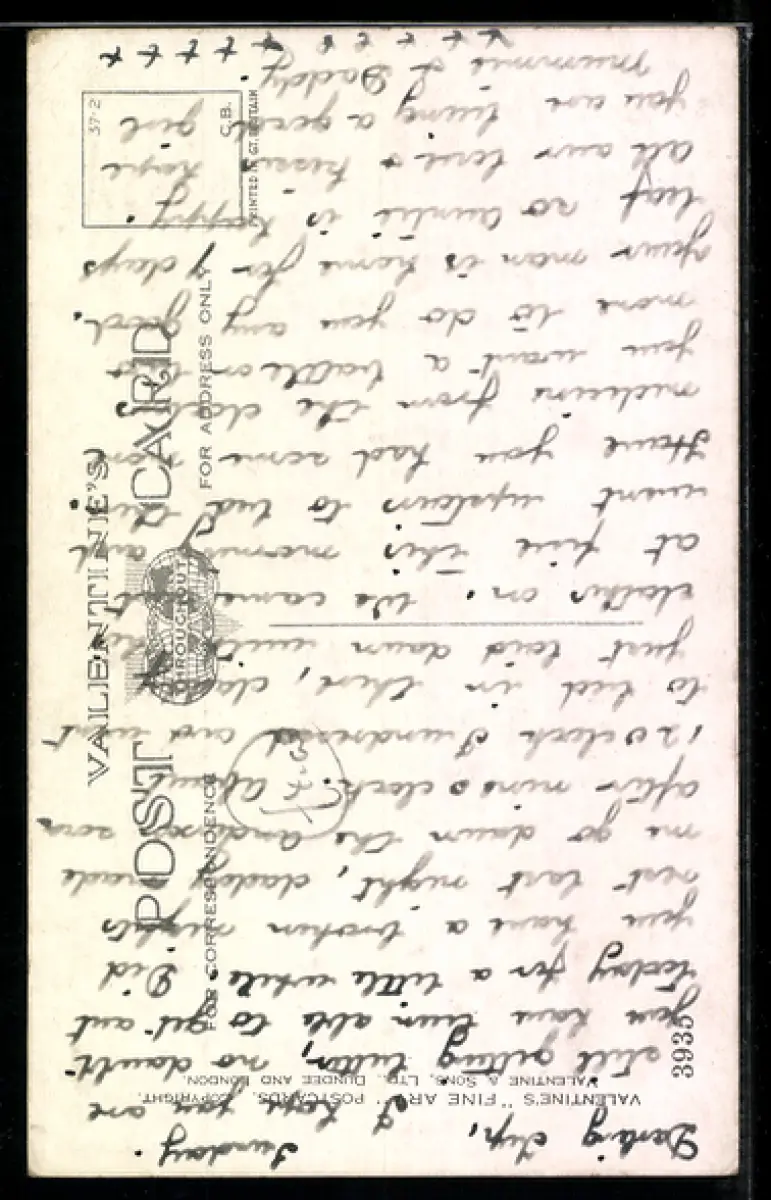 VALENTINE'S
POST CARD
FOR CORRESPONDENCE
THROUGHOUT
FOR ADDRESS ONLY
37-2
G.B.
PRINTED IN GT. BRITAIN
VALENTINE'S "FINE ART" POSTCARDS. COPYRIGHT.
VALENTINE & SONS, LTD., DUNDEE AND LONDON.
3935
Sunday.
Darling I hope you are
still getting better, no doubt
you have been able to get out
today for a little while. Did
you have a broken nights
rest last night, daddy made
me go down the anderson
after nine oclock. about
12 oclock I undressed and went
to bed in there, daddy
just laid down with his
clothes on. We came out
at five this morning and
went upstairs to bed then.
Have you had some more
medicine from the doctors
you want a bottle or two
more to do you any good.
your man is home for 7 days
leaf so auntie is happy.
all our love & kisses hope
you are being a good girl
Mummie & Daddy.
x x x x x x x x x x